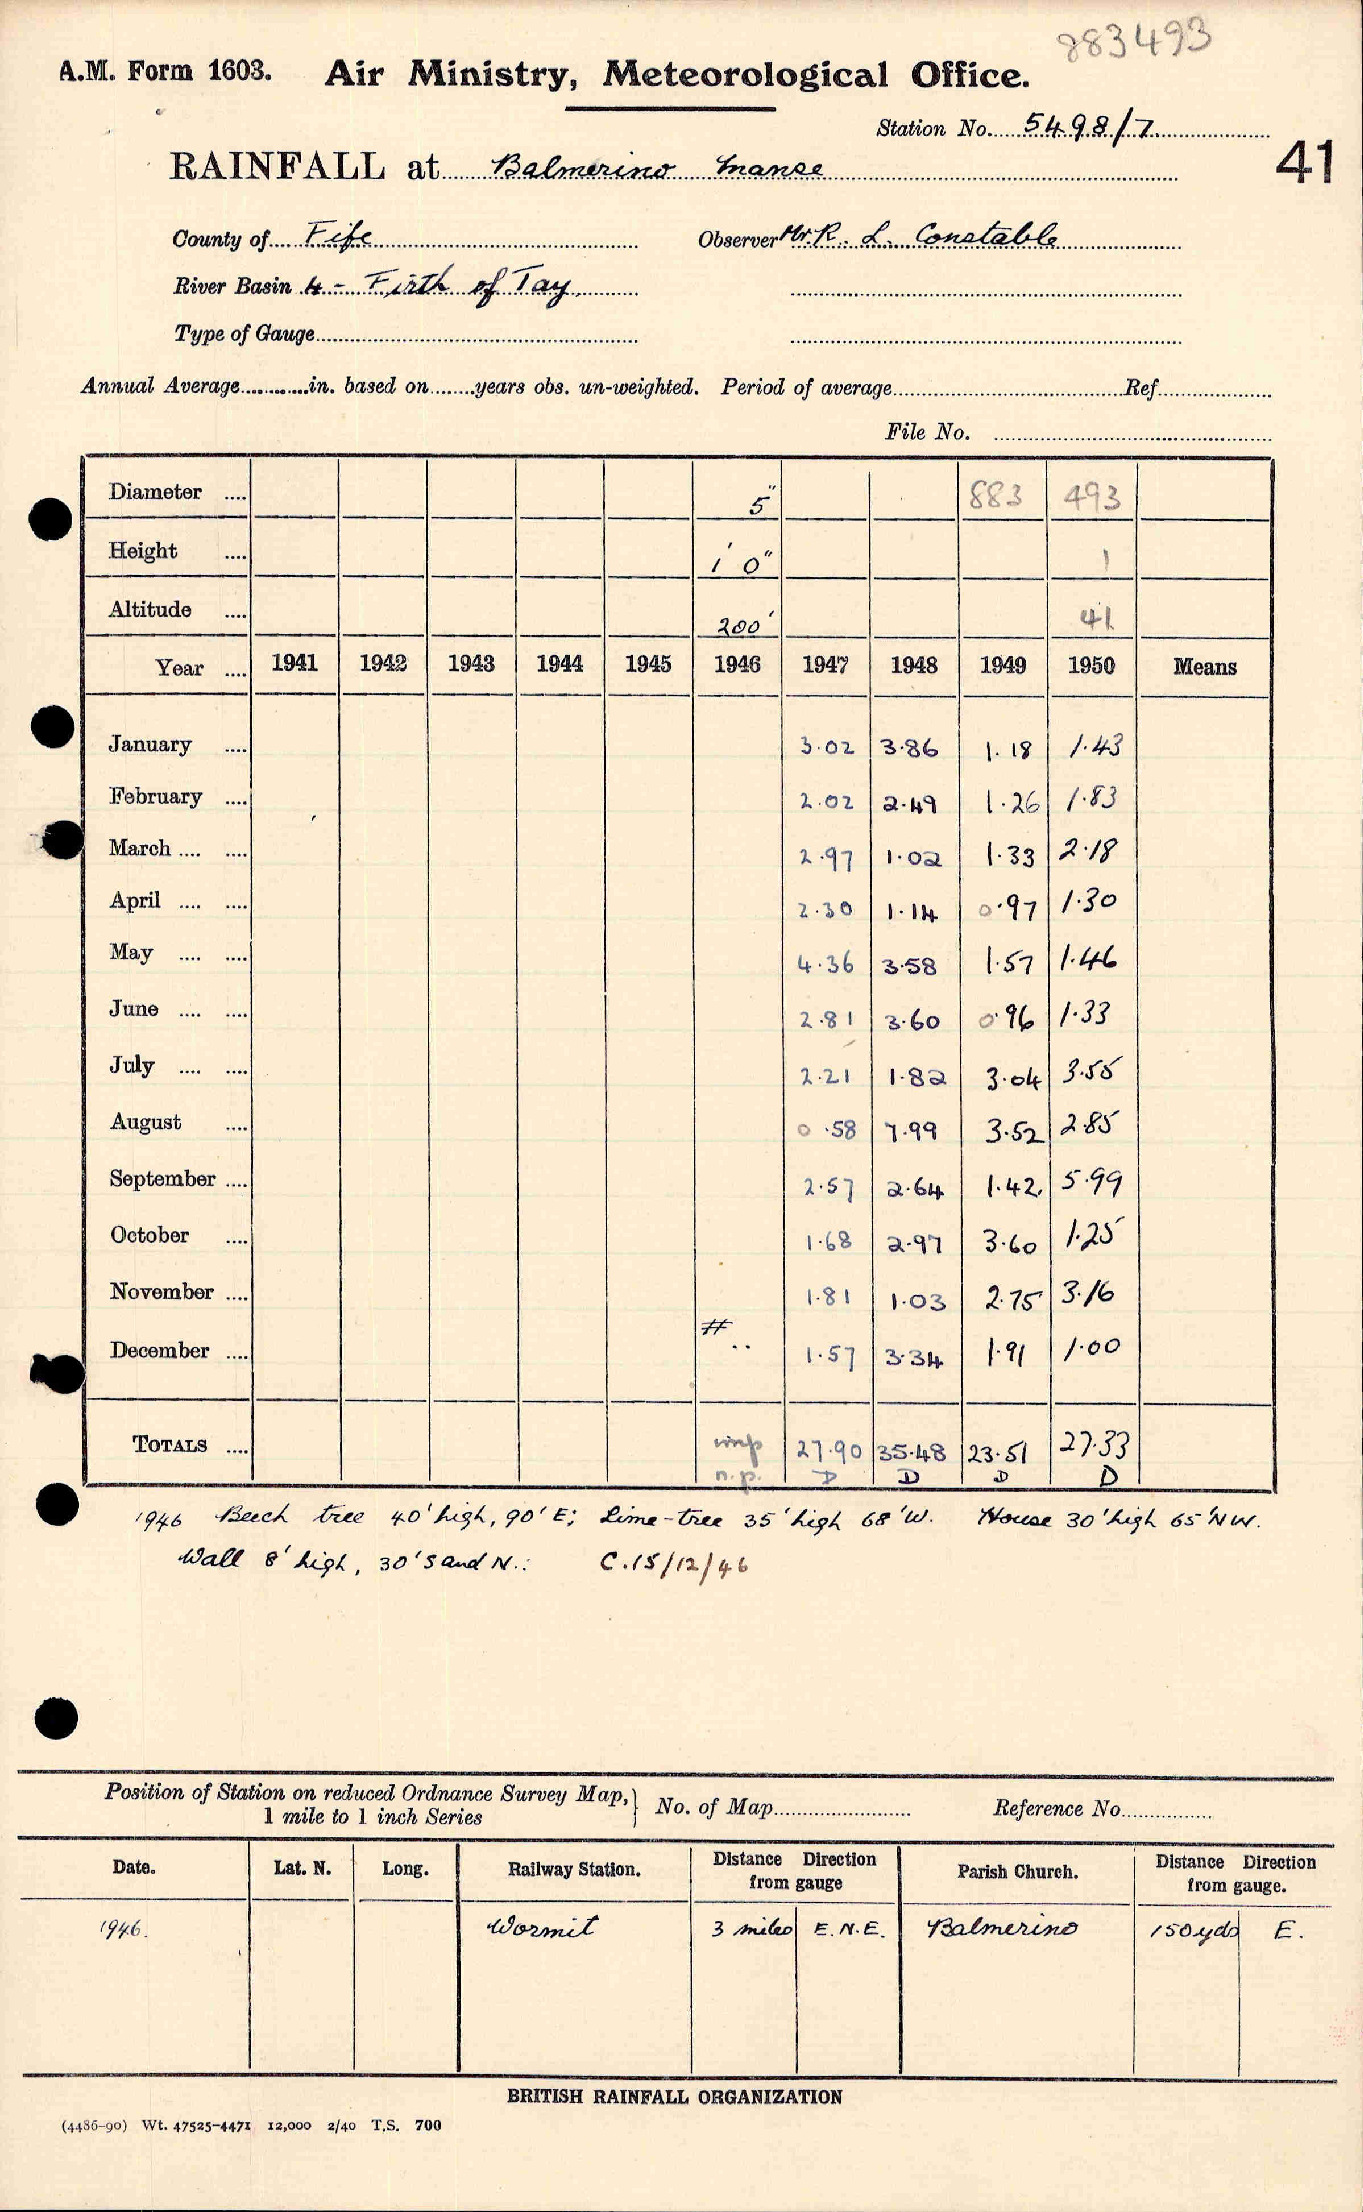 883493
A.M. Form 1603. Air Ministry, Meteorological Office.
Station No. 5498/7
41
RAINFALL at Balmerino Manse
County of Fife Observer Mr. R. L. Constable
River Basin 4 - Firth of Tay
Type of Gauge
Annual Average in. based on years obs. un-weighted. Period of average Ref
File No.
Diameter .... 5" 883 493
Height .... 1' 0" 1
Altitude .... 200' 41
Year .... 1941 1942 1943 1944 1945 1946 1947 1948 1949 1950 Means
January .... 3.02 3.86 1.18 1.43
February .... 2.02 2.49 1.26 1.83
March .... .... 2.97 1.02 1.33 2.18
April .... .... 2.30 1.14 0.97 1.30
May .... .... 4.36 3.58 1.57 1.46
June .... .... 2.81 3.60 0.96 1.33
July .... .... 2.21 1.82 3.04 3.55
August .... 0.58 7.99 3.52 2.85
September .... 2.57 2.64 1.42 5.99
October .... 1.68 2.97 3.60 1.25
November .... 1.81 1.03 2.75 3.16
December .... # .. 1.57 3.34 1.91 1.00
TOTALS .... imp 27.90 35.48 23.51 27.33
n.p. D D D D
1946 Beech tree 40' high, 90' E; Lime-tree 35' high 68' W. House 30' high 65' NW.
Wall 8' high, 30' S and N.: C.15/12/46
Position of Station on reduced Ordnance Survey Map, } No. of Map Reference No.
1 mile to 1 inch Series
Date. Lat. N. Long. Railway Station. Distance Direction from gauge Parish Church. Distance Direction from gauge.
1946. Wormit 3 miles E.N.E. Balmerino 150 yds E.
BRITISH RAINFALL ORGANIZATION
(4486-90) Wt. 47525-4471 12,000 2/40 T.S. 700